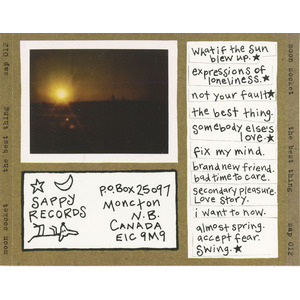 moon socket
the best thing
sap 012
SAPPY
RECORDS
P.O. Box 25097
Moncton
N.B.
CANADA
E1C 9M9
what if the sun
blew up.
expressions of
loneliness.
not your fault
the best thing.
somebody elses
love
fix my mind.
brand new friend.
bad time to care.
secondary pleasure.
Love story.
i want to now.
almost spring.
accept fear.
Swing.
moon socket
the best thing
sap 012